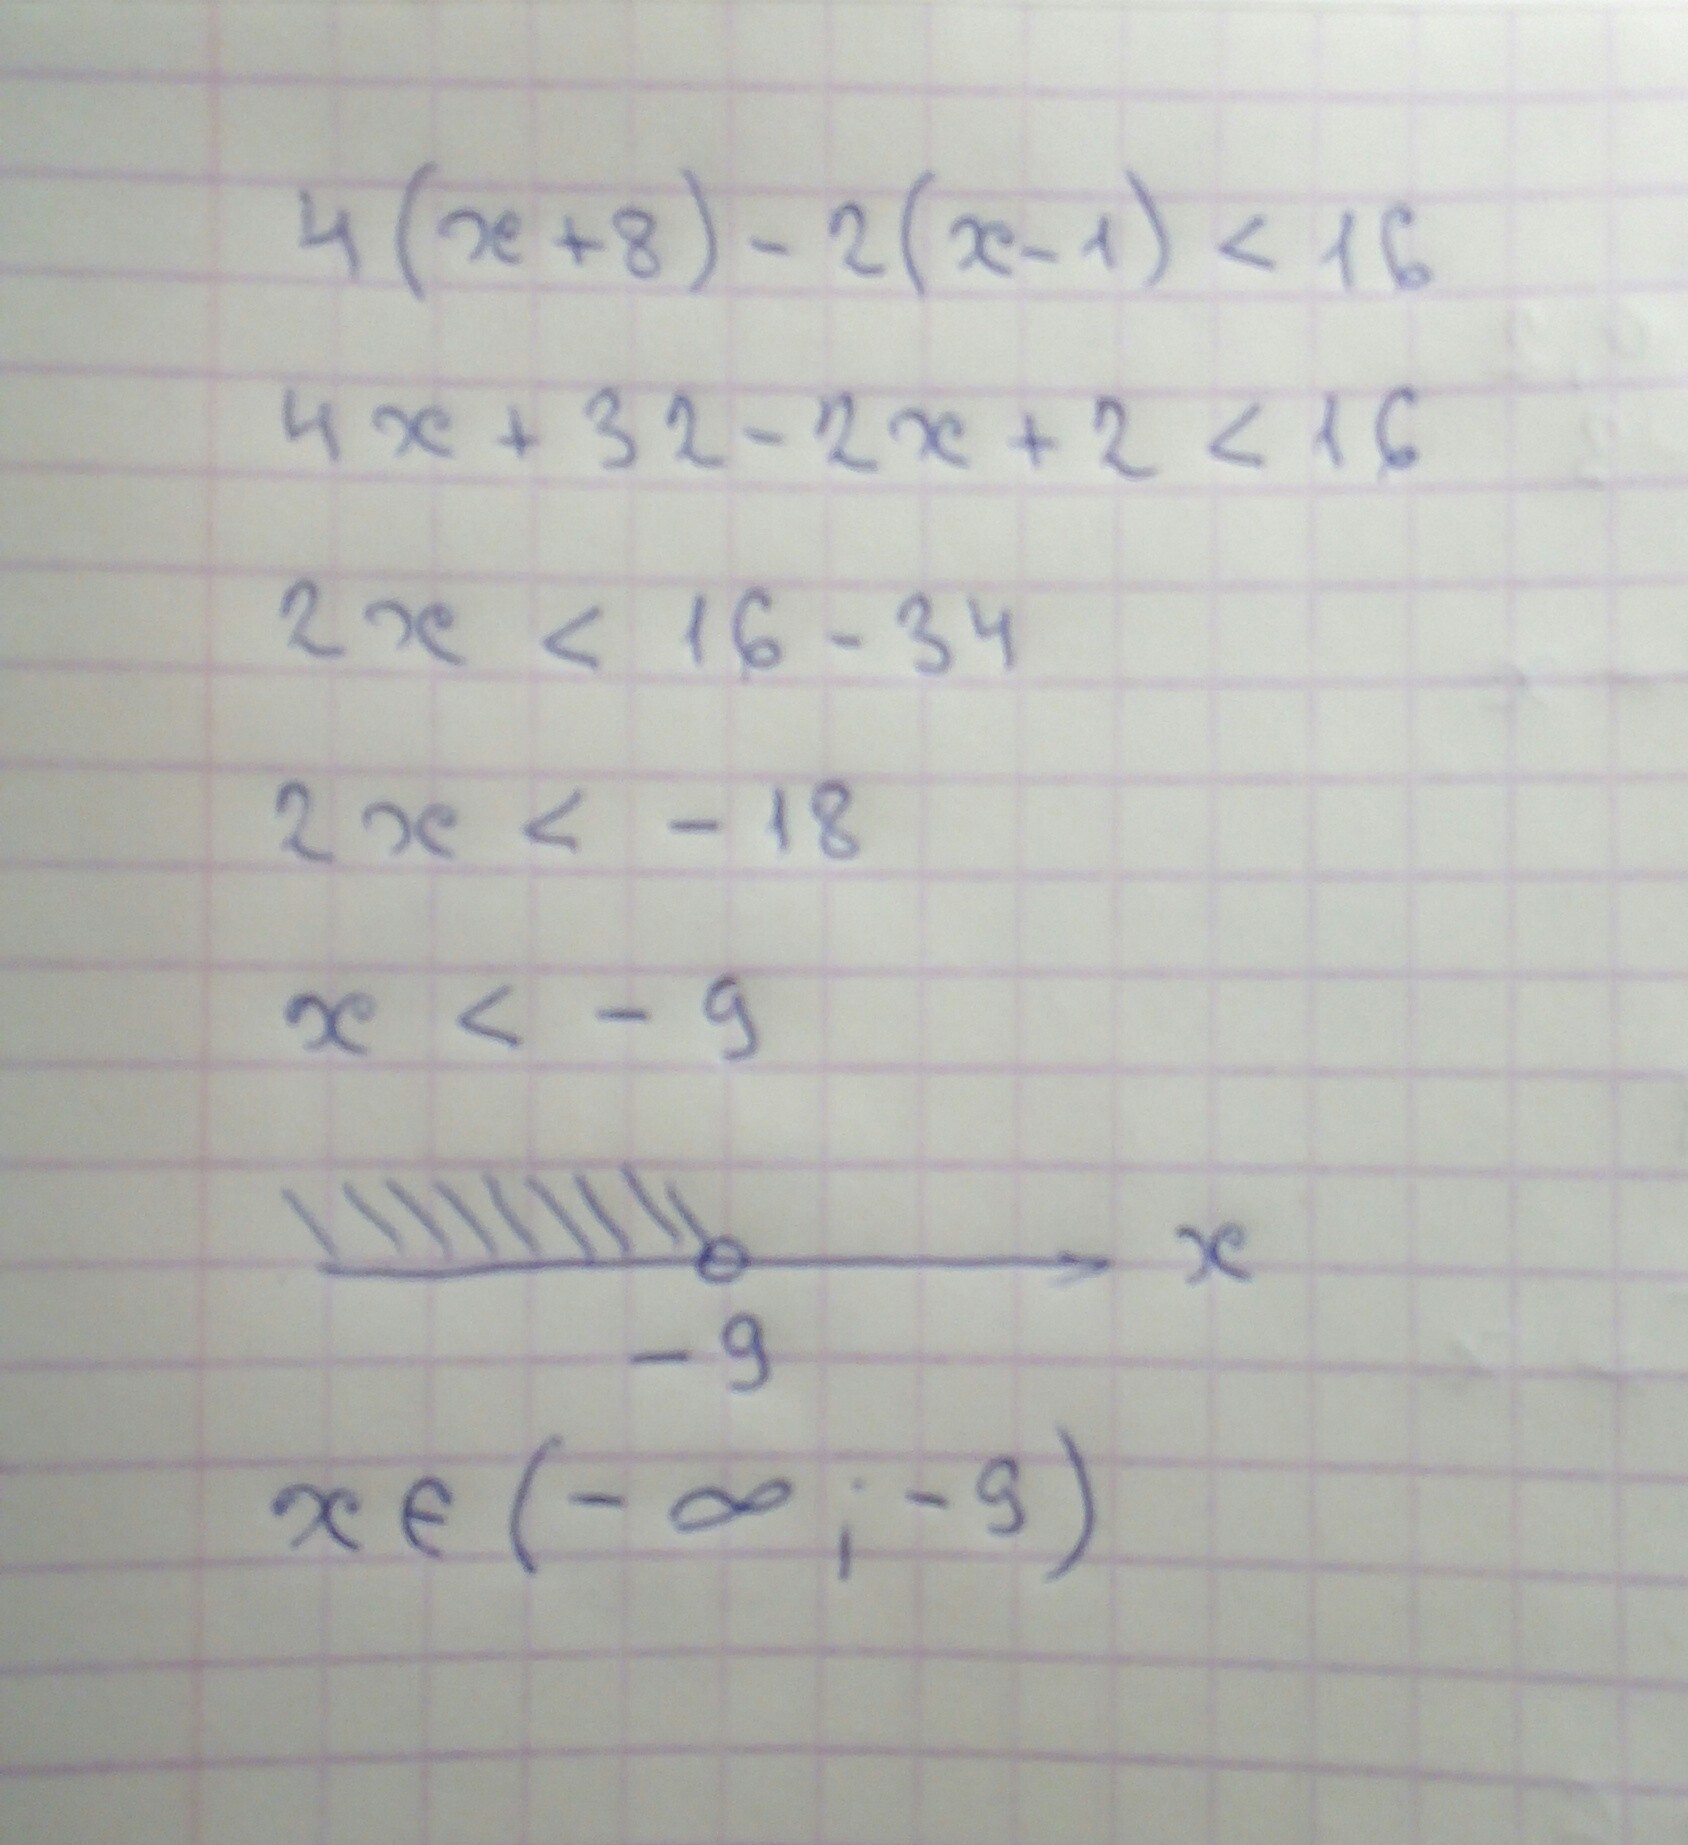 4(x+8)-2(x-1)<16
4x+32-2x+2<16
2x<16-34
2x<-18
x<-9
x
-9
x∈(-∞;-9)